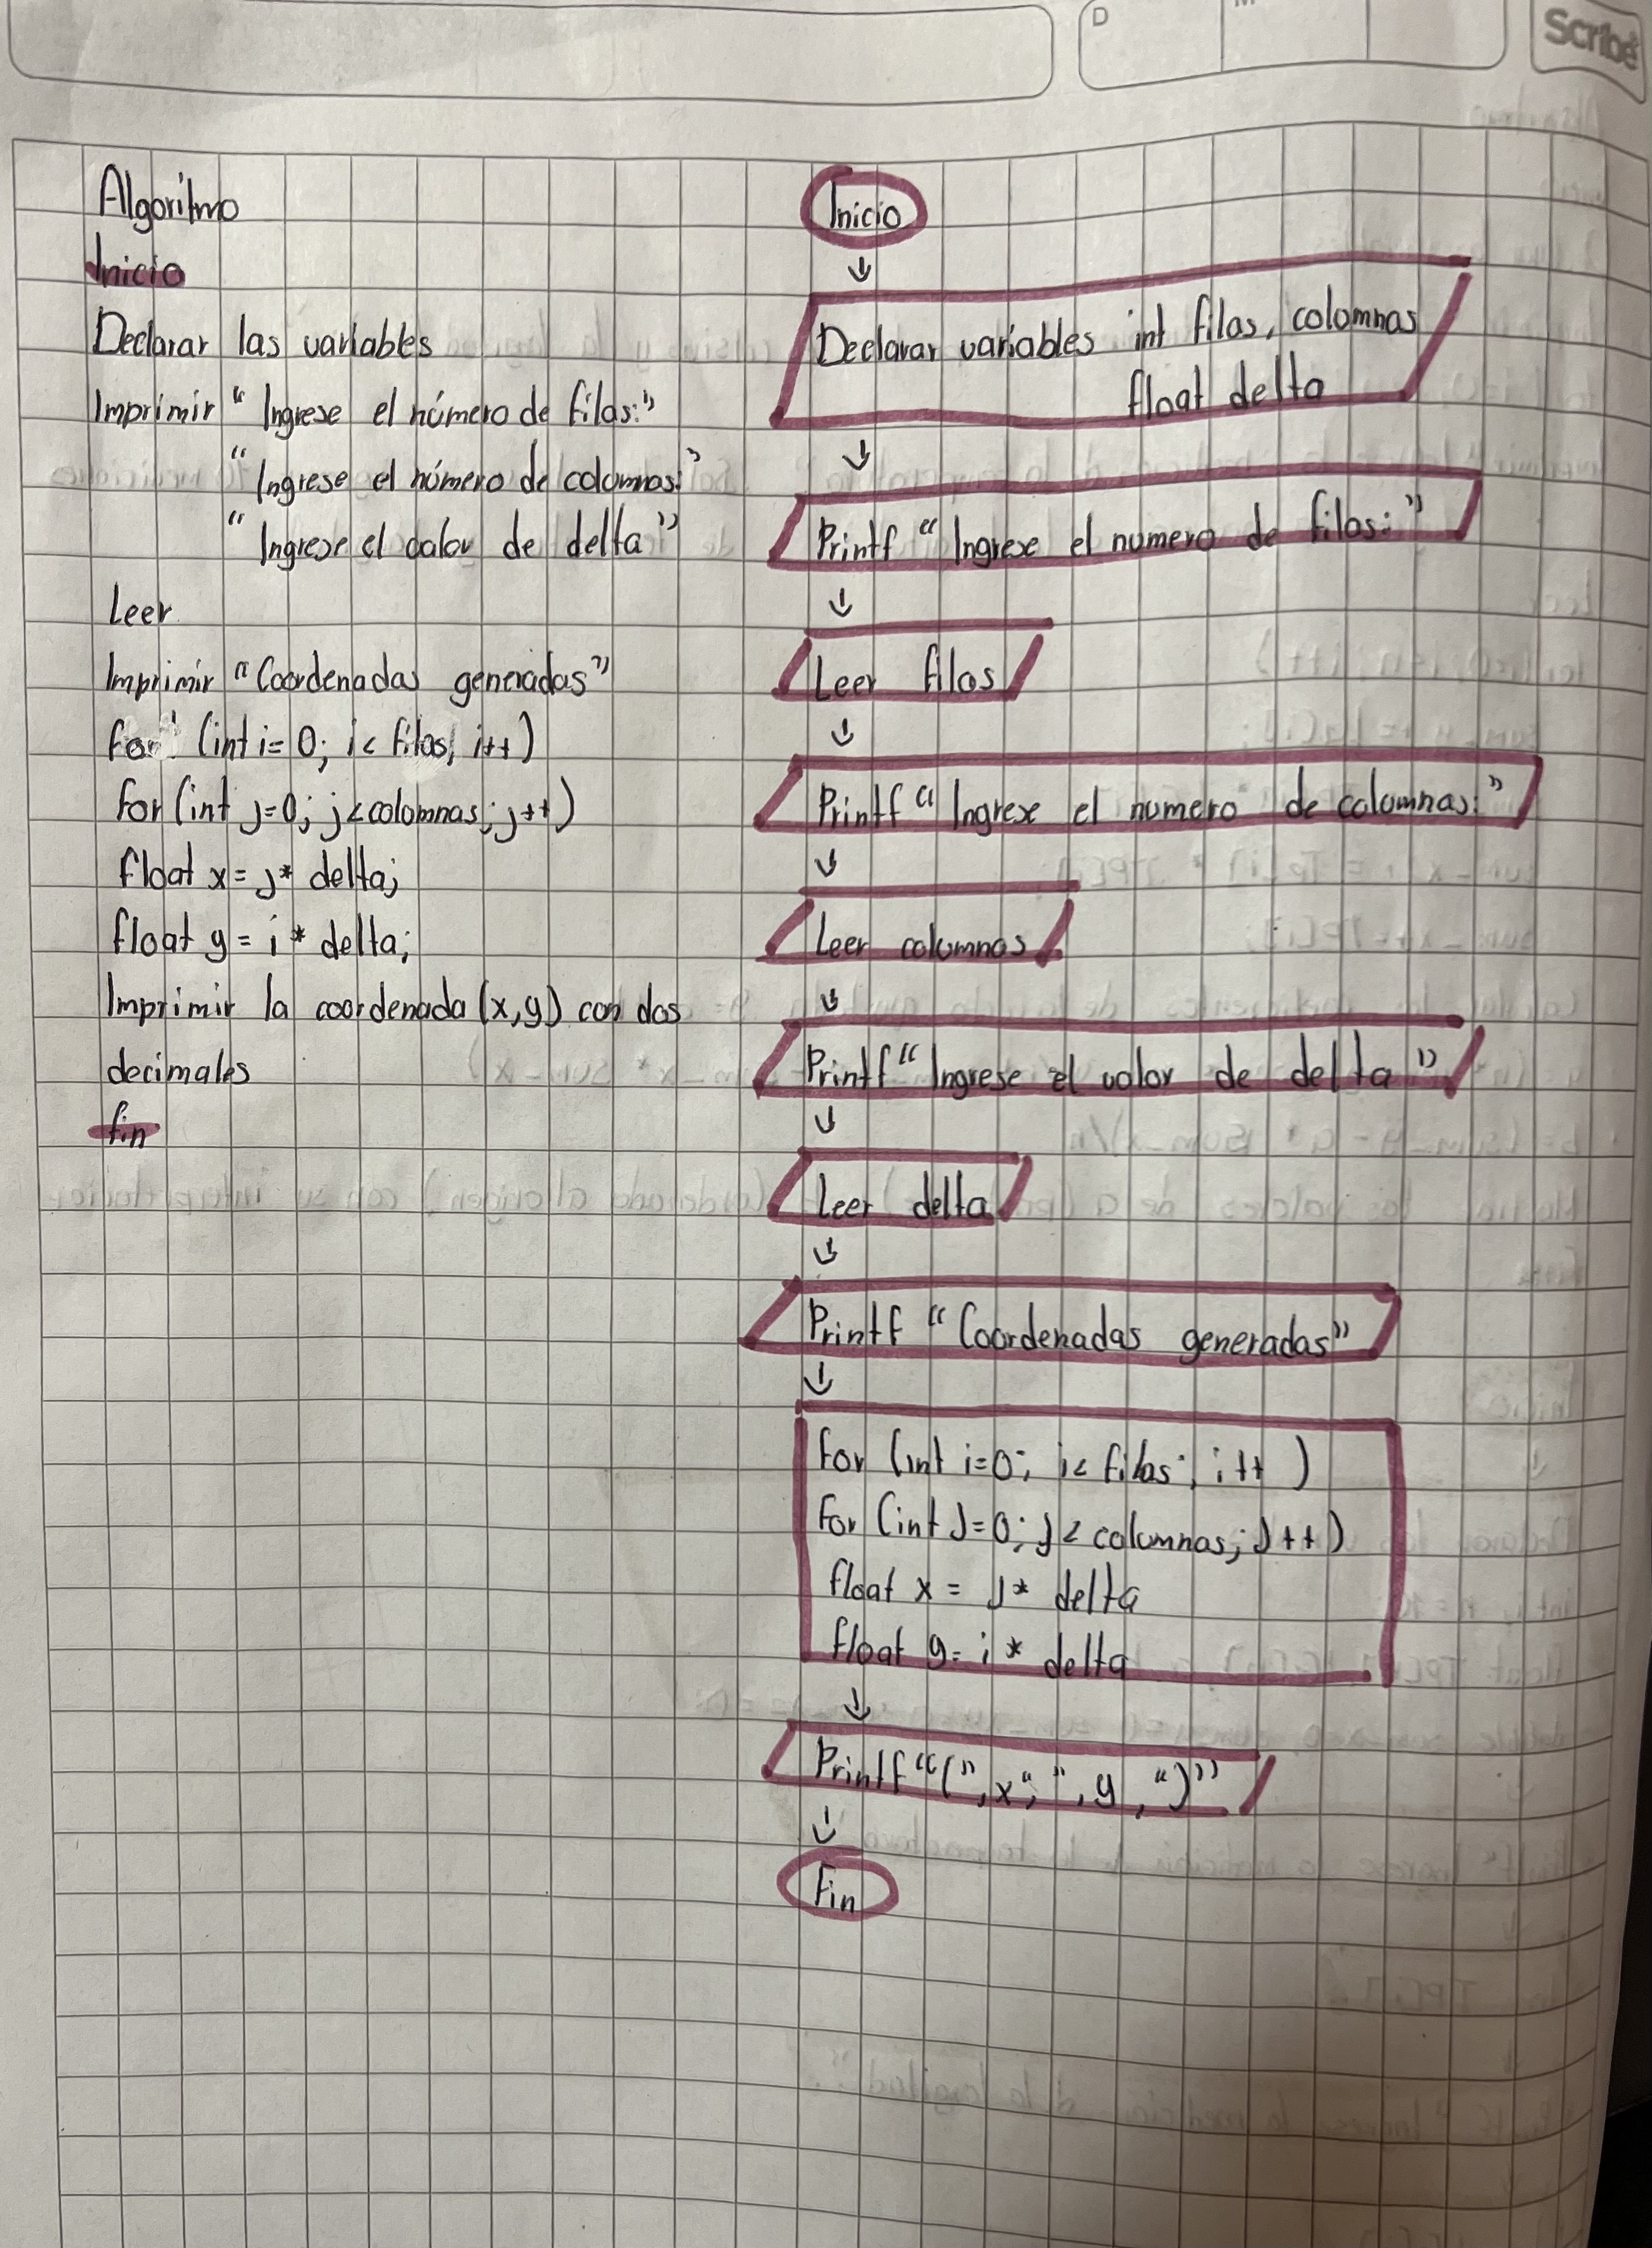 Scribe
D
Algoritmo
Inicio
Declarar las variables
Imprimir "Ingrese el número de filas:"
"Ingrese el número de columnas:"
"Ingrese el valor de delta"
Leer
Imprimir "Coordenadas generadas"
for (int i=0; i< filas; i++)
for (int j=0; j<columnas; j++)
float x= j* delta;
float y= i* delta;
Imprimir la coordenada (x,y) con dos
decimales
fin
Inicio
↓
Declarar variables int filas, columnas
float delta
↓
Printf "Ingrese el numero de filas:"
↓
Leer filas
↓
Printf "Ingrese el numero de columnas:"
↓
Leer columnas
↓
Printf "Ingrese el valor de delta"
↓
Leer delta
↓
Printf "Coordenadas generadas"
↓
for (int i=0; i< filas; i++ )
for (int j=0; j< columnas; j++)
float x= j* delta
float y= i* delta
↓
Printf "(", x "," , y , ")"
↓
Fin